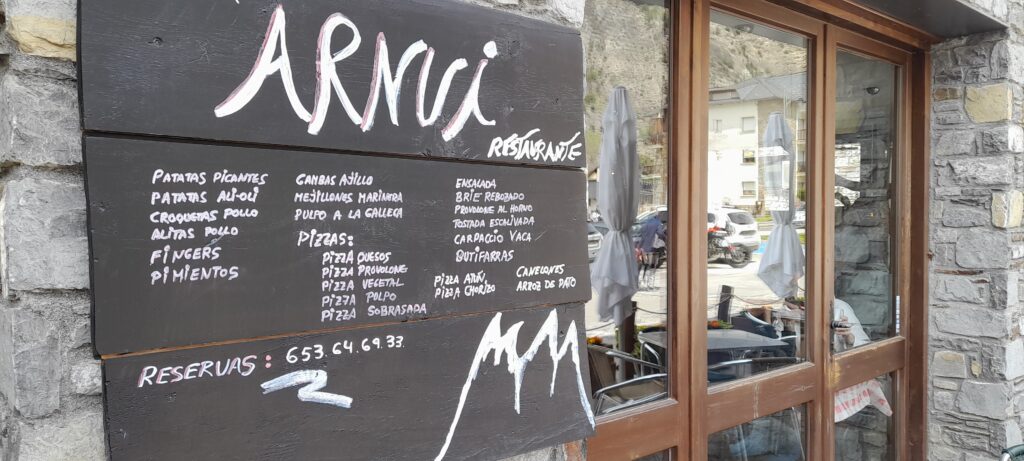 ARNUi
RESTAURANTE
PATATAS PICANTES
PATATAS ALI-OLI
CROQUETAS POLLO
ALITAS POLLO
FINGERS
PIMIENTOS
GAMBAS AJILLO
MEJILLONES MARINERA
PULPO A LA GALLEGA
PIZZAS:
PIZZA QUESOS
PIZZA PROVOLONE
PIZZA VEGETAL
PIZZA POLPO
PIZZA SOBRASADA
PIZZA ATÚN
PIZZA CHORIZO
ENSALADA
BRIE REBOZADO
PROVOLONE AL HORNO
TOSTADA ESCALIVADA
CARPACCIO VACA
BUTIFARRAS
CANELONES
ARROZ DE PATO
RESERVAS: 653.64.69.33